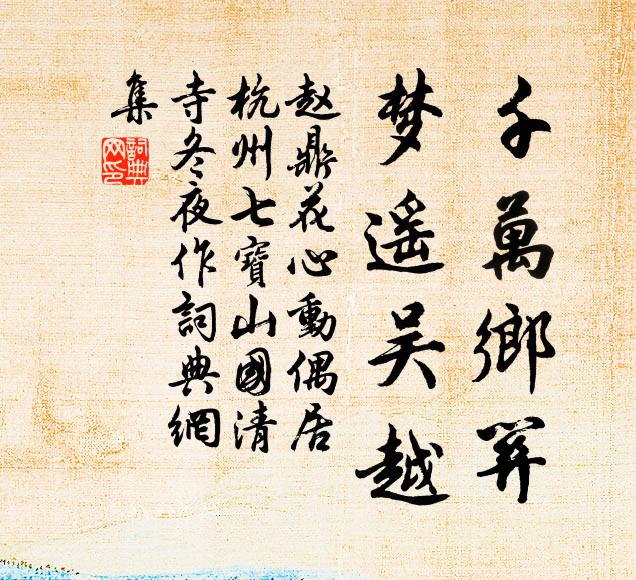 千萬鄉關
梦遥吴越
赵鼎花心動偶居
杭州七寶山國清
寺冬夜作詞典網
集
詞典
网印